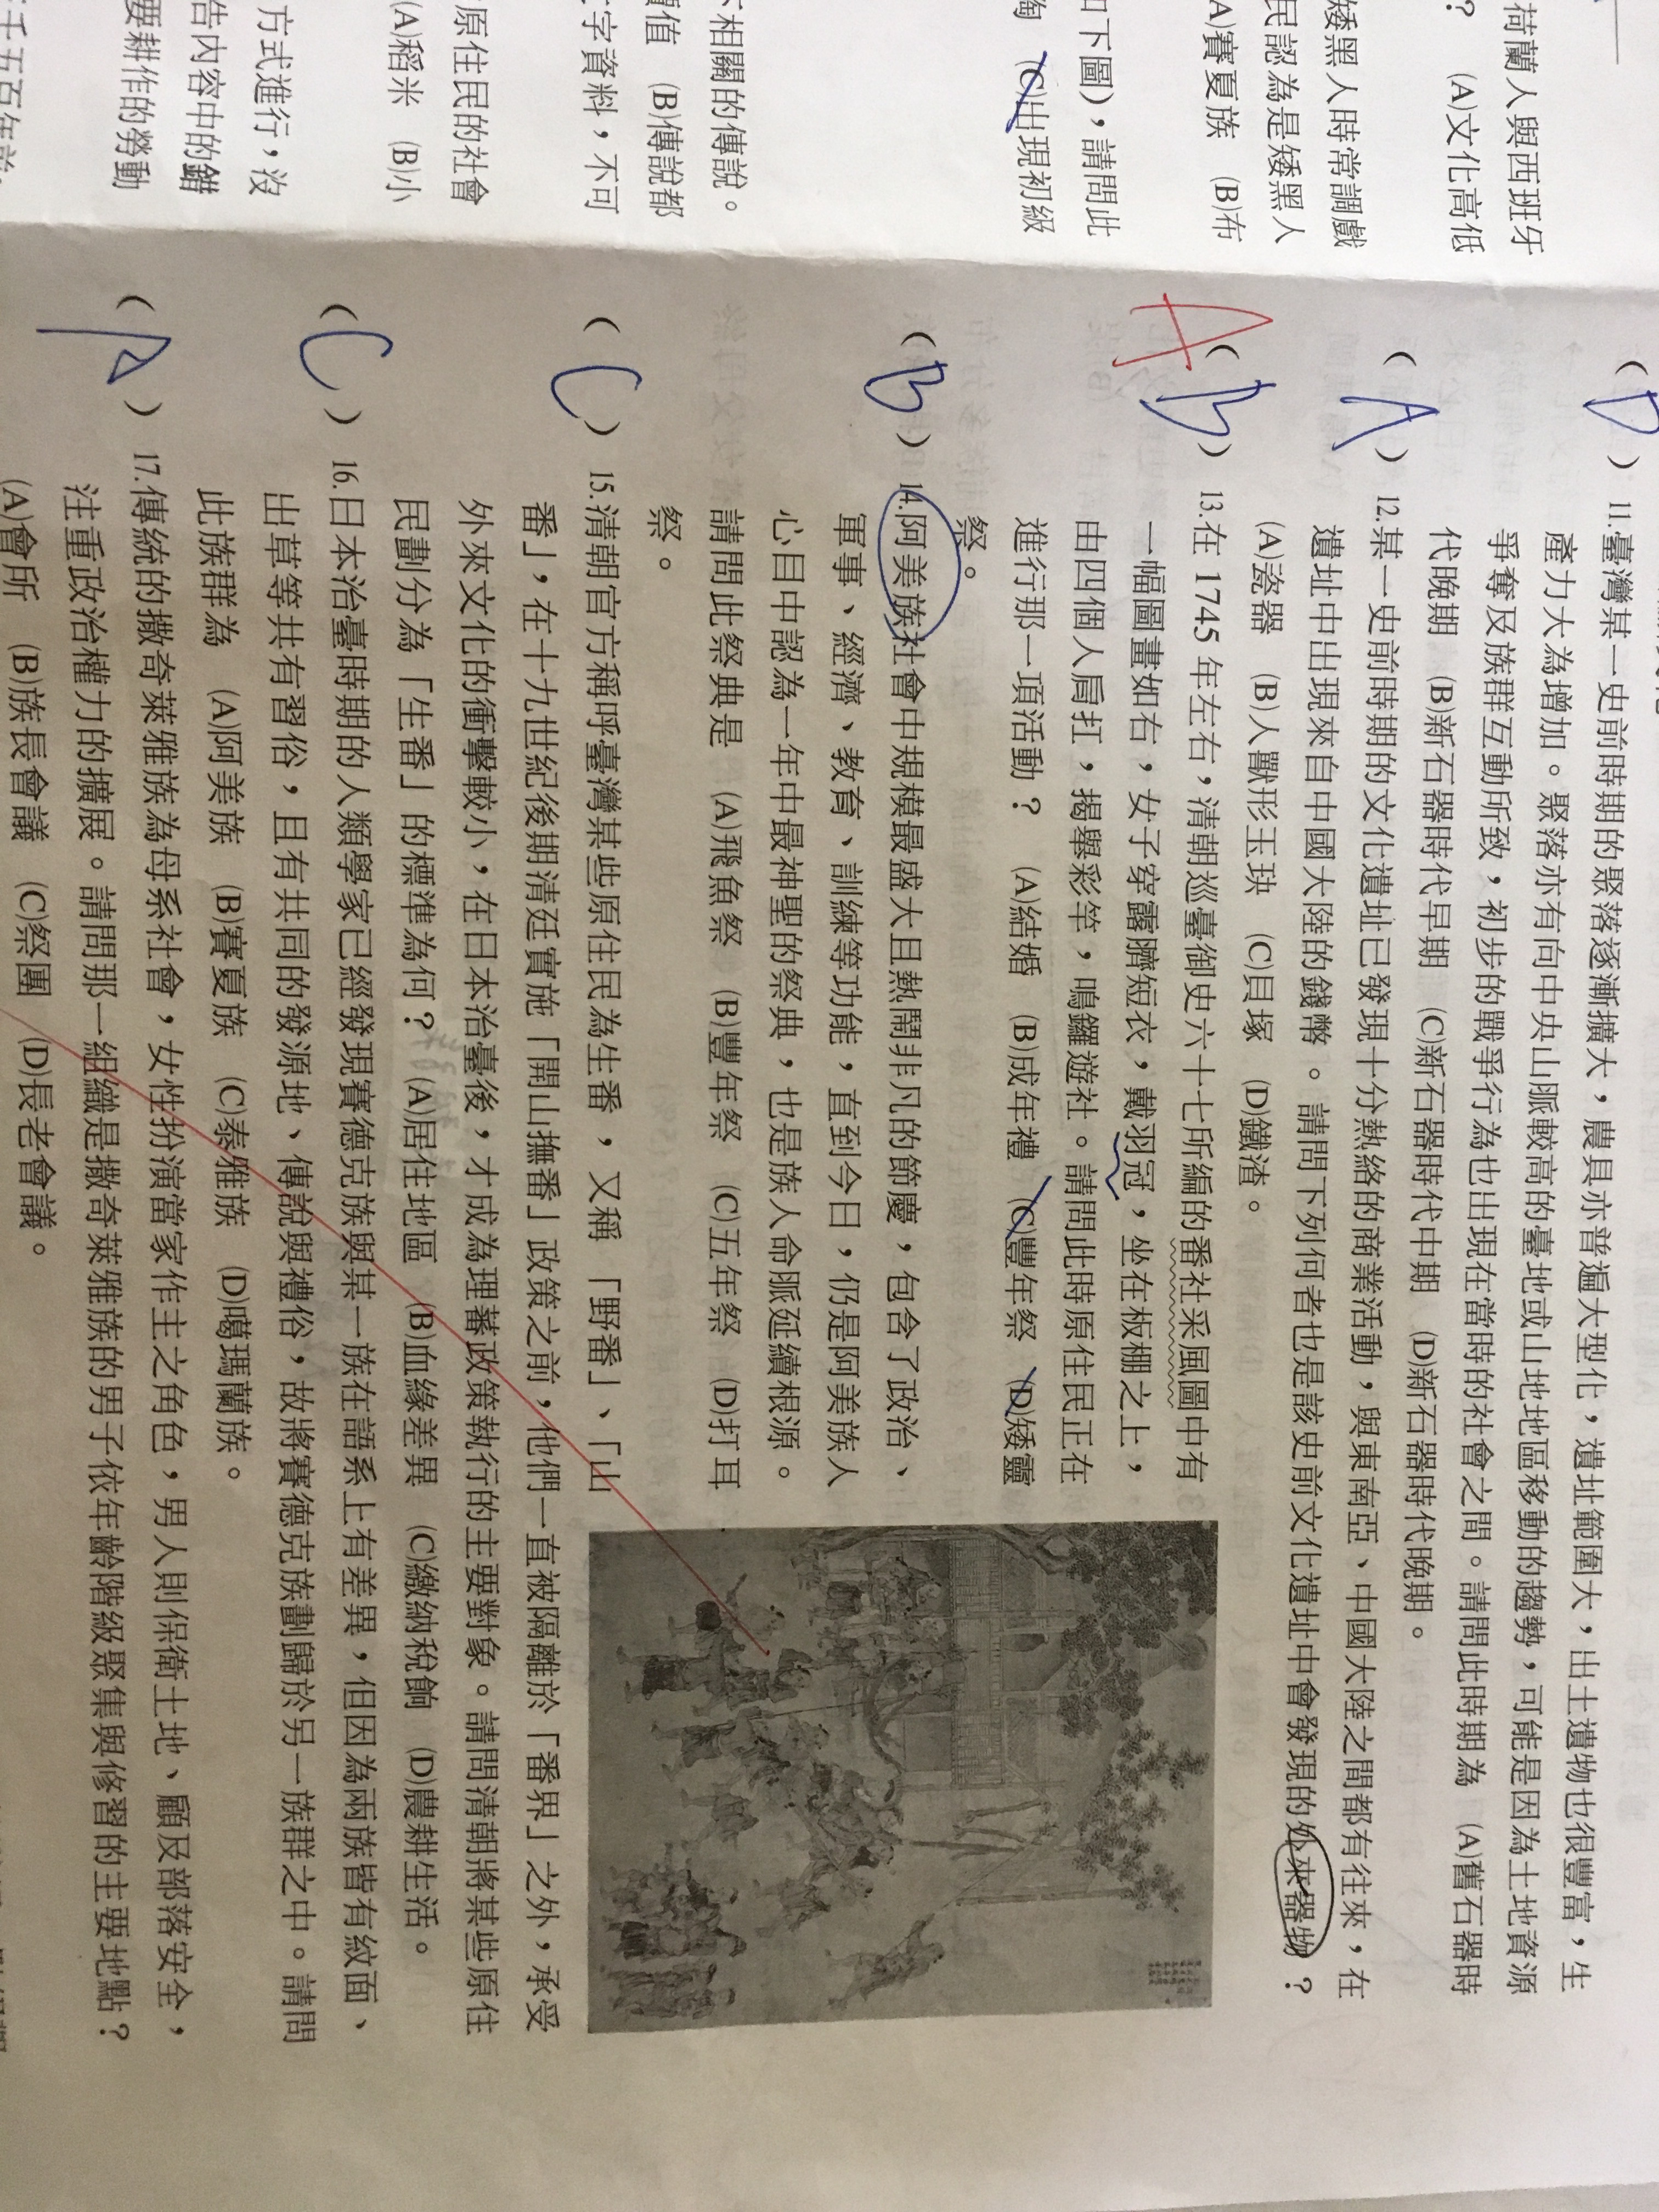 荷蘭人與西班牙
? (A)文化高低
矮黑人時常調戲
民認為是矮黑人
A)賽夏族 (B)布
如下圖)，請問此
陶 (C)出現初級
相關的傳說。
值 (B)傳說都
字資料，不可
原住民的社會
(A)稻米 (B)小
方式進行，沒
告內容中的錯
要耕作的勞動
千五百年前
( D ) 11.臺灣某一史前時期的聚落逐漸擴大，農具亦普遍大型化，遺址範圍大，出土遺物也很豐富，生
產力大為增加。聚落亦有向中央山脈較高的臺地或山地地區移動的趨勢，可能是因為土地資源
爭奪及族群互動所致，初步的戰爭行為也出現在當時的社會之間。請問此時期為 (A)舊石器時
代晚期 (B)新石器時代早期 (C)新石器時代中期 (D)新石器時代晚期。
( A ) 12.某一史前時期的文化遺址已發現十分熱絡的商業活動，與東南亞、中國大陸之間都有往來，在
遺址中出現來自中國大陸的錢幣。請問下列何者也是該史前文化遺址中會發現的外來器物？
(A)瓷器 (B)人獸形玉玦 (C)貝塚 (D)鐵渣。
A ( B ) 13.在 1745 年左右，清朝巡臺御史六十七所編的番社采風圖中有
一幅圖畫如右，女子穿露臍短衣，戴羽冠，坐在板棚之上，
由四個人肩扛，揭舉彩竿，鳴鑼遊社。請問此時原住民正在
進行那一項活動？ (A)結婚 (B)成年禮 (C)豐年祭 (D)矮靈
祭。
( B ) 14.阿美族社會中規模最盛大且熱鬧非凡的節慶，包含了政治、
軍事、經濟、教育、訓練等功能，直到今日，仍是阿美族人
心目中認為一年中最神聖的祭典，也是族人命脈延續根源。
請問此祭典是 (A)飛魚祭 (B)豐年祭 (C)五年祭 (D)打耳
祭。
( C ) 15.清朝官方稱呼臺灣某些原住民為生番，又稱「野番」、「山
番」，在十九世紀後期清廷實施「開山撫番」政策之前，他們一直被隔離於「番界」之外，承受
外來文化的衝擊較小，在日本治臺後，才成為理蕃政策執行的主要對象。請問清朝將某些原住
民劃分為「生番」的標準為何？ (A)居住地區 (B)血緣差異 (C)繳納稅餉 (D)農耕生活。
( C ) 16.日本治臺時期的人類學家已經發現賽德克族與某一族在語系上有差異，但因為兩族皆有紋面、
出草等共有習俗，且有共同的發源地、傳說與禮俗，故將賽德克族劃歸於另一族群之中。請問
此族群為 (A)阿美族 (B)賽夏族 (C)泰雅族 (D)噶瑪蘭族。
( A ) 17.傳統的撒奇萊雅族為母系社會，女性扮演當家作主之角色，男人則保衛土地、顧及部落安全，
注重政治權力的擴展。請問那一組織是撒奇萊雅族的男子依年齡階級聚集與修習的主要地點？
(A)會所 (B)族長會議 (C)祭團 (D)長老會議。